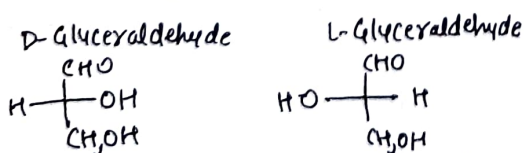 D-Glyceraldehyde
CHO
H OH
CH2OH
L-Glyceraldehyde
CHO
HO H
CH2OH